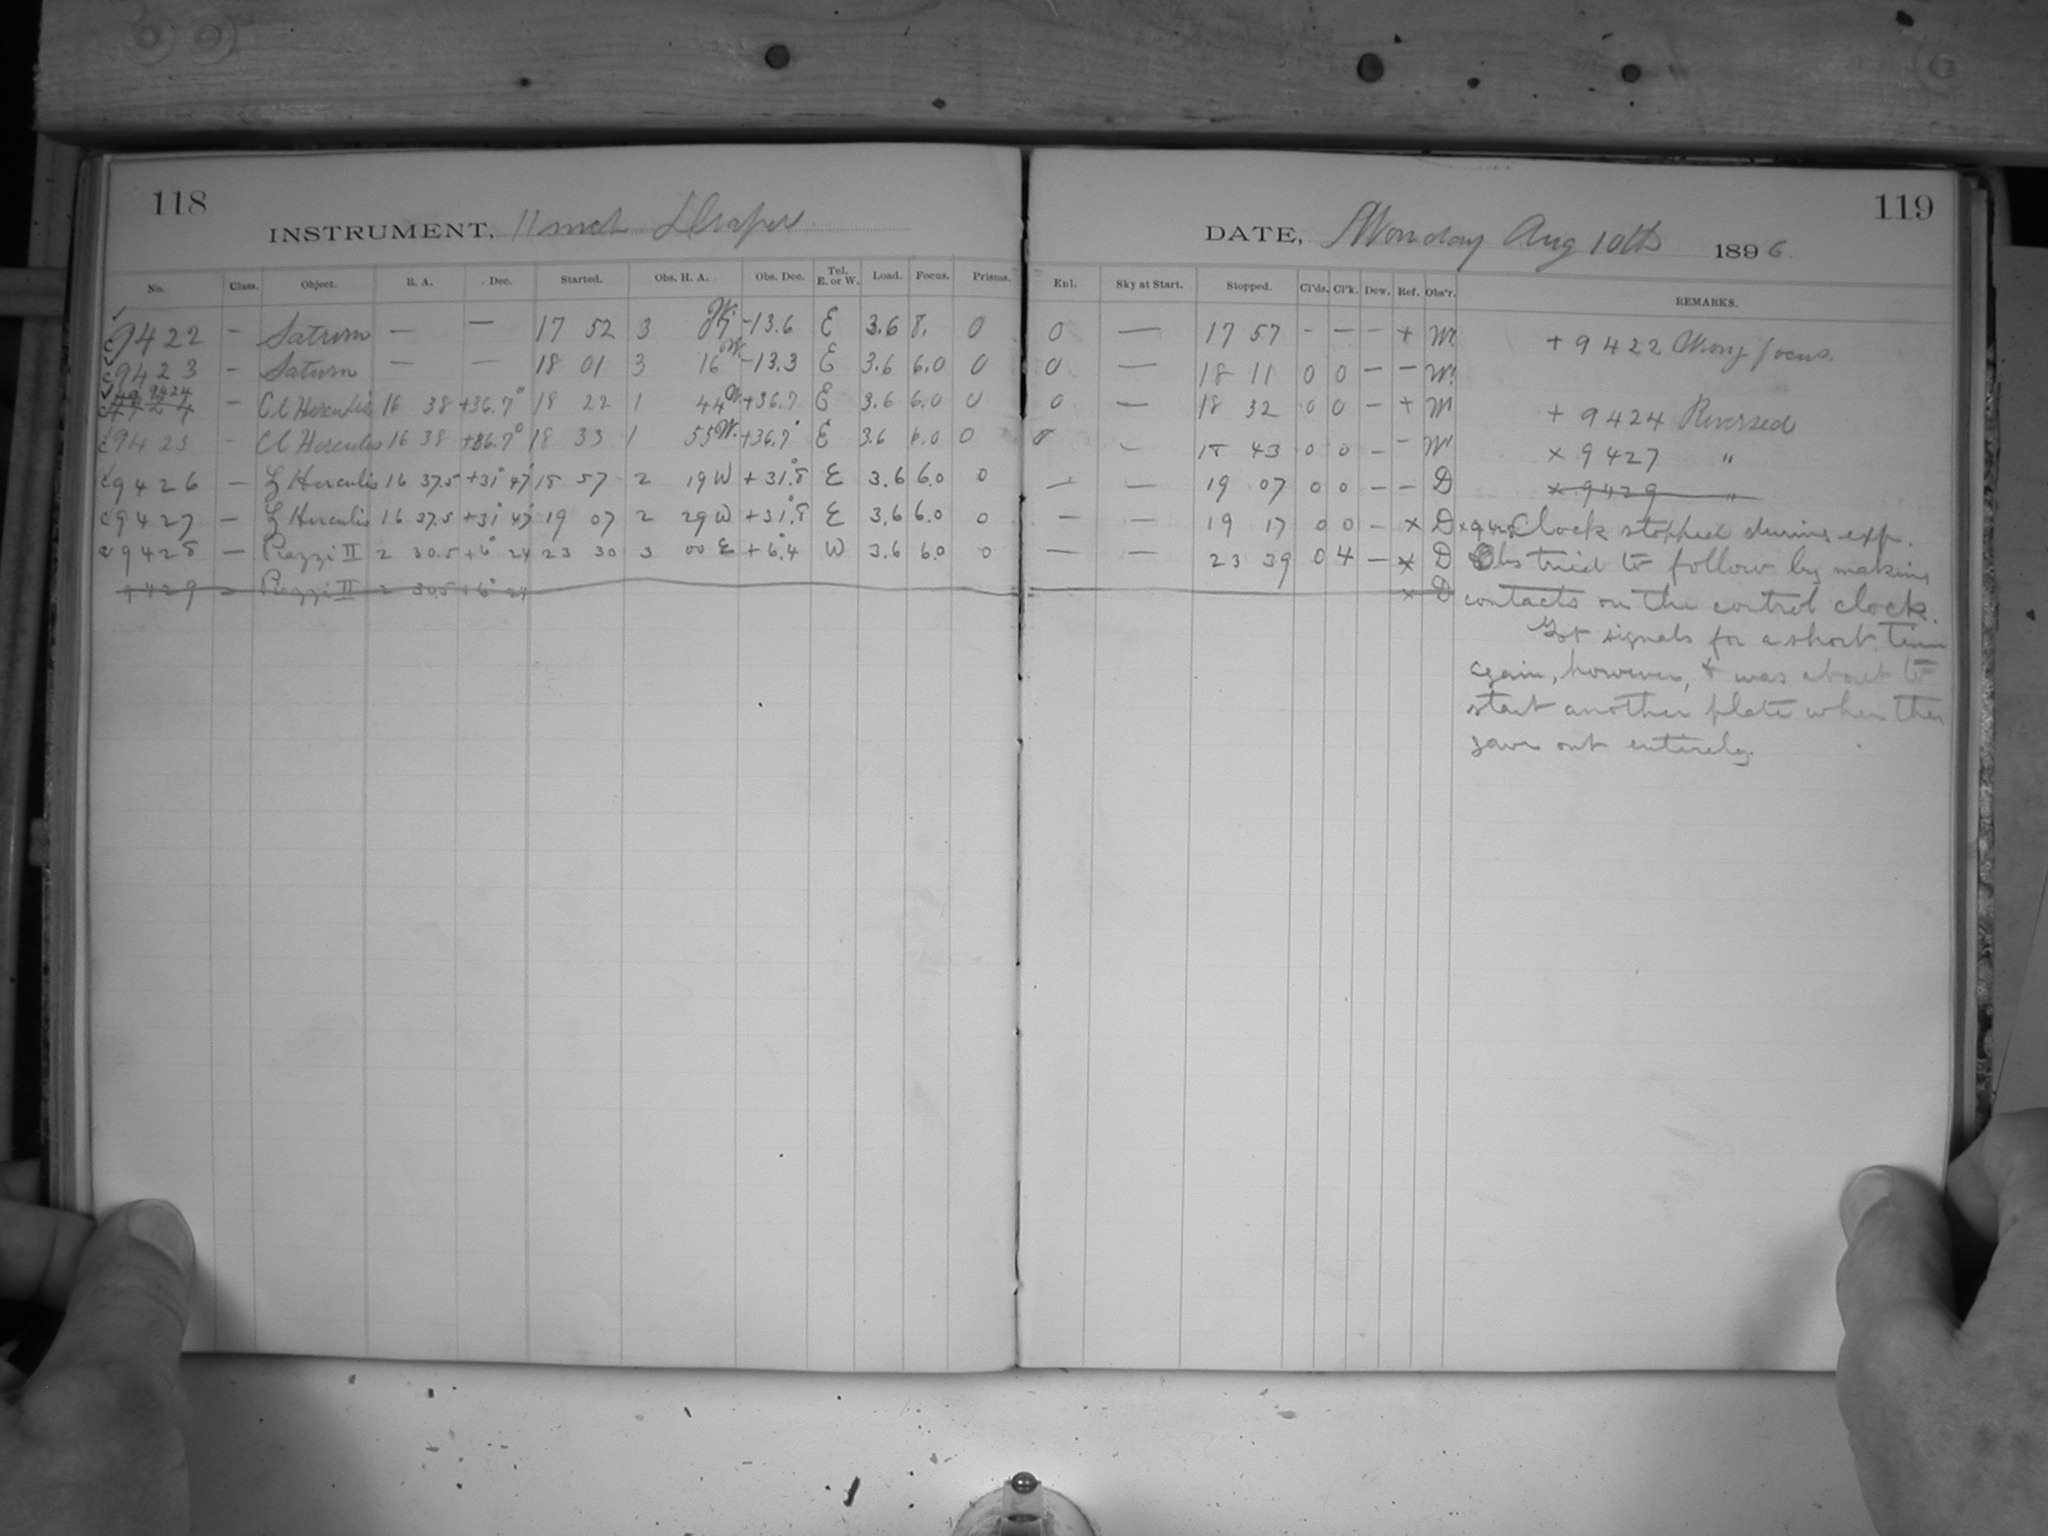 118
INSTRUMENT, 11 inch Draper.
No. Class. Object. R. A. Dec. Started. Obs. H. A. Obs. Dec. Tel. E. or W. Load. Focus. Prisms.
9422 – Saturn — — 17 52 3 -13.6 E 3.6 8. 0
9423 – Saturn — — 18 01 3 16 W. -13.3 E 3.6 6.0 0
9424 – Cl Herculis 16 38 +36.7° 18 22 1 44 W. +36.7 E 3.6 6.0 0
9425 – Cl Herculis 16 38 +36.7° 18 33 1 55 W. +36.7° E 3.6 6.0 0
9426 – ζ Herculis 16 37.5 +31° 47' 18 57 2 19 W +31.°8 E 3.6 6.0 0
9427 – ζ Herculis 16 37.5 +31° 47' 19 07 2 29 W +31.°8 E 3.6 6.0 0
9428 – Piazzi II 2 30.5 +6° 24 23 30 3 00 E +6.°4 W 3.6 6.0 0
9429 – Piazzi II 2 30.5 +6° 24
119
DATE, Monday Aug 10th 1896
Enl. Sky at Start. Stopped. Cl'ds. Cl'k. Dew. Ref. Obs'r. REMARKS.
0 — 17 57 – – – + W.
0 — 18 11 0 0 – – W.
0 — 18 32 0 0 – + W
0 – 18 43 0 0 – – W
— — 19 07 0 0 – – D
— — 19 17 0 0 – × D
— — 23 39 0 4 – × D
× D
+ 9422 Wrong focus.
+ 9424 Reversed
× 9427 "
× 9429 "
× 9428 Clock stopped during exp.
Obs tried to follow by making
contacts on the control clock.
Got signals for a short time
again, however, & was about to
start another plate when they
gave out entirely.